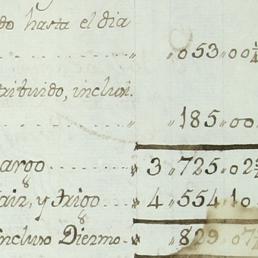 do hasta el dia
" " 053 " 00
tribuido, inclus.
" " 185 " 00
argo " 3 " 725 " 02
aiz, y trigo " 4 " 554 " 10
incluso Diezmo " " 829 " 07